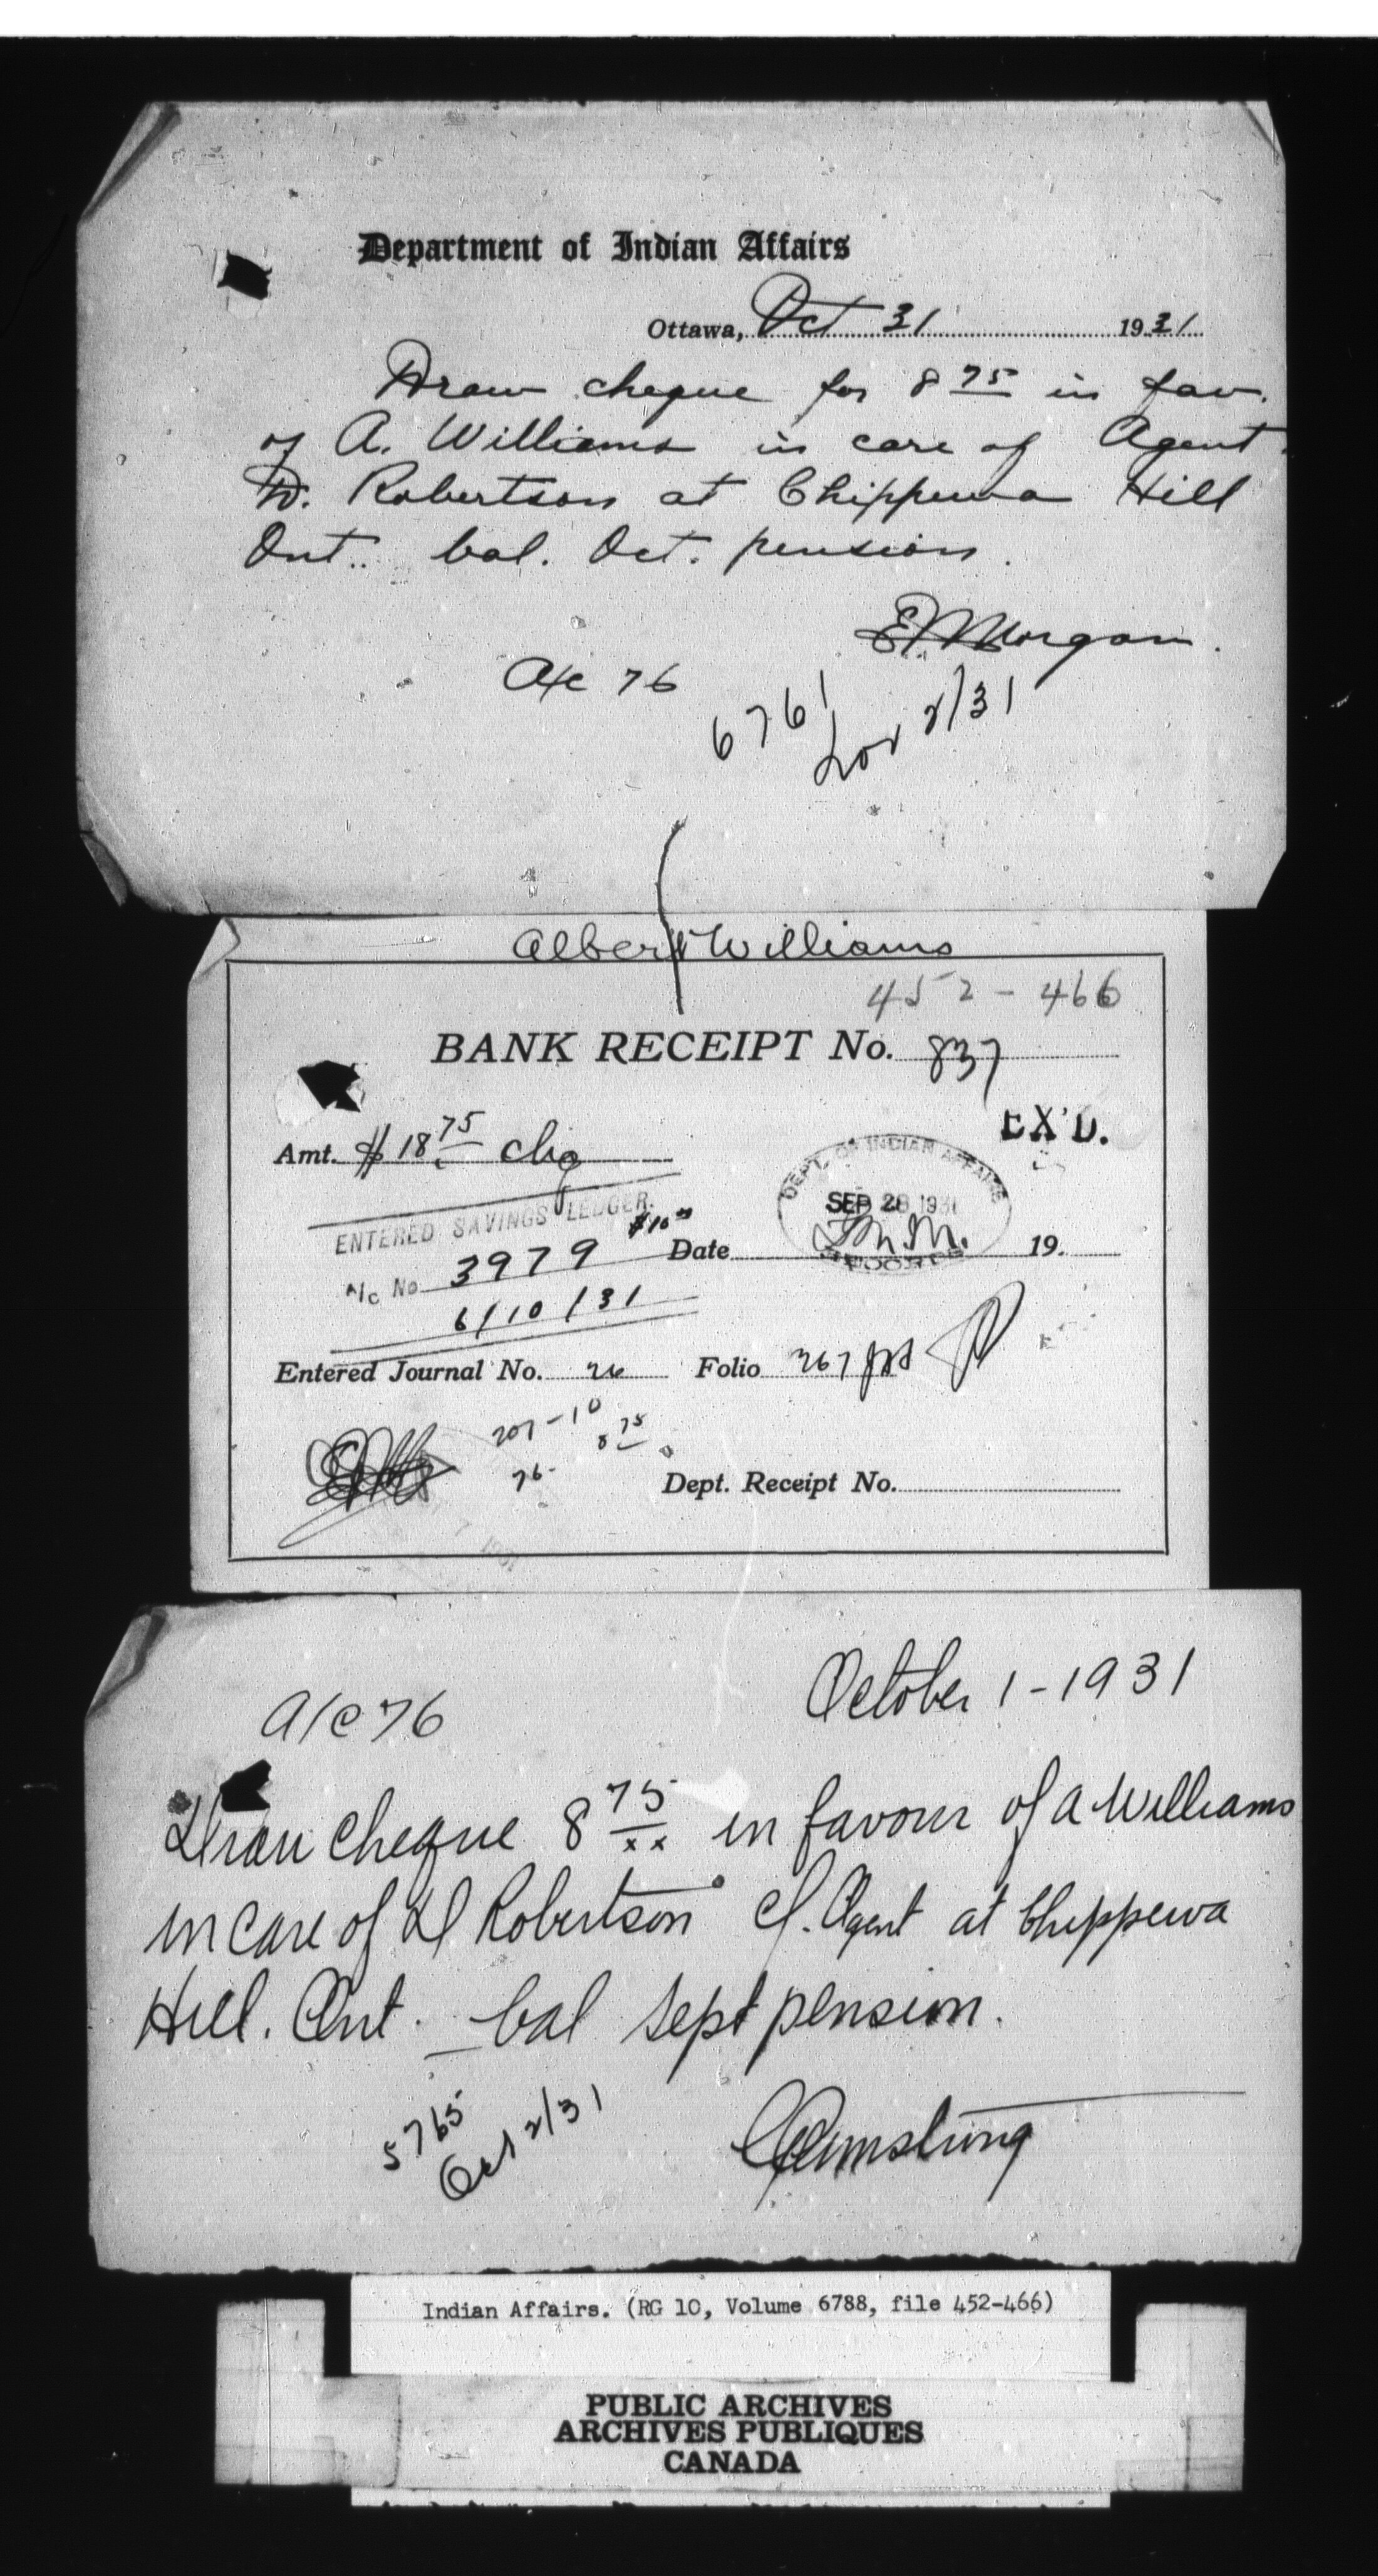 Department of Indian Affairs
Ottawa, Oct 31 1931
Draw cheque for 8 75 in fav.
of A. Williams in care of Agent
D. Robertson at Chippewa Hill
Ont.. bal. Oct. pension.
E Morgan.
A/c 76
6761
Nov 2/31
Albert Williams
452-466
BANK RECEIPT No. 837
EX'D.
Amt. $18. 75 chq
DEPT. OF INDIAN AFFAIRS
SEP 28 1931
ENTERED SAVINGS LEDGER.
$10 00
A/c No 3979
Date 19.
6/10/31
Entered Journal No. 26 Folio 267
207-10
8 75
76-
Dept. Receipt No.
October 1-1931
A/C 76
Draw Cheque 8 75/xx in favour of A Williams
in care of D Robertson Agent at Chippewa
Hill. Ont. - bal Sept pension.
5765
Oct 2/31
Armstrong
Indian Affairs. (RG 10, Volume 6788, file 452-466)
PUBLIC ARCHIVES
ARCHIVES PUBLIQUES
CANADA